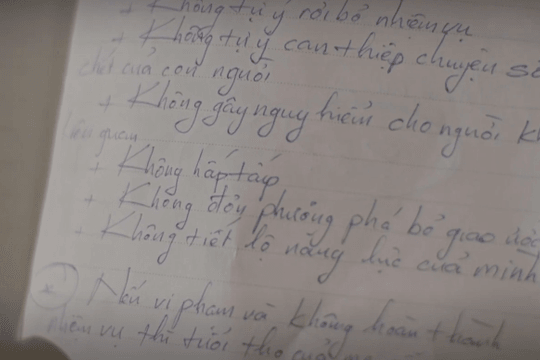 + Không tự ý rời bỏ nhiệm vụ
+ Không tự ý can thiệp chuyện
chết của con người
+ Không gây nguy hiểm cho người
liên quan
+ Không hấp tấp
+ Không đơn phương phá bỏ giao ước
+ Không tiết lộ năng lực của mình
Nếu vi phạm và không hoàn thành
nhiệm vụ thì tuổi thọ của